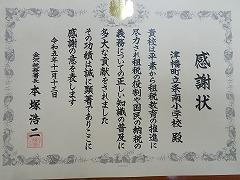 感謝状
津幡町立条南小学校 殿
貴校は平素から租税教育の推進に
尽力され租税の役割や国民の納税の
義務についての正しい知識の普及に
多大な貢献をされました
その功績は誠に顕著でありここに
感謝の意を表します
令和五年十一月十六日
金沢税務署長 本塚浩二